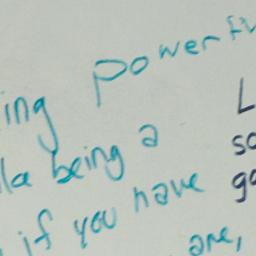 ing powerfu
la being a
if you have
are,
L
so
go